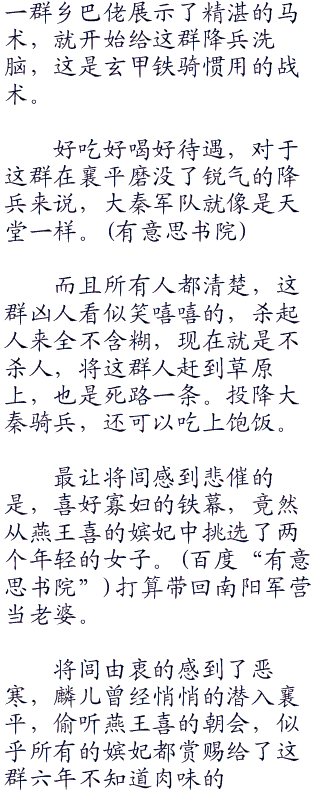 一群乡巴佬展示了精湛的马
术，就开始给这群降兵洗
脑，这是玄甲铁骑惯用的战
术。
好吃好喝好待遇，对于
这群在襄平磨没了锐气的降
兵来说，大秦军队就像是天
堂一样。(有意思书院)
而且所有人都清楚，这
群凶人看似笑嘻嘻的，杀起
人来全不含糊，现在就是不
杀人，将这群人赶到草原
上，也是死路一条。投降大
秦骑兵，还可以吃上饱饭。
最让将闾感到悲催的
是，喜好寡妇的铁幕，竟然
从燕王喜的嫔妃中挑选了两
个年轻的女子。(百度“有意
思书院”)打算带回南阳军营
当老婆。
将闾由衷的感到了恶
寒，麟儿曾经悄悄的潜入襄
平，偷听燕王喜的朝会，似
乎所有的嫔妃都赏赐给了这
群六年不知道肉味的